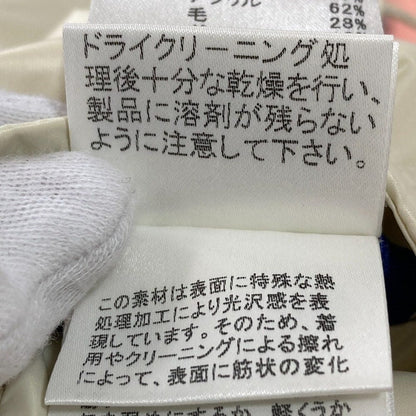 62%
毛 28%
ドライクリーニング処
理後十分な乾燥を行い、
製品に溶剤が残らない
ように注意して下さい。
この素材は表面に特殊な熱
処理加工により光沢感を表
現しています。そのため、着
用やクリーニングによる擦れ
によって、表面に筋状の変化